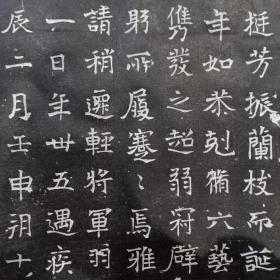 挺芳振蘭枝而誕
年如恭剋備六藝
儁發之超弱冠辟
躬所履蹇〻焉雅
請稍遷輕將軍羽
一日年卅五遇疾
辰二月壬申朔十